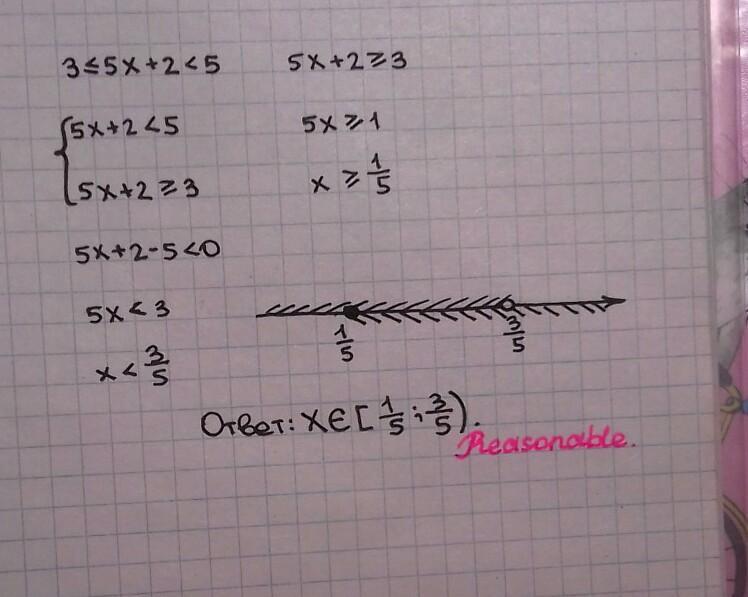 3≤5x+2<5
{5x+2<5
5x+2≥3
5x+2-5<0
5x<3
x<3/5
5x+2≥3
5x≥1
x≥1/5
1/5 3/5
Ответ: x∈[1/5;3/5).
Reasonable.